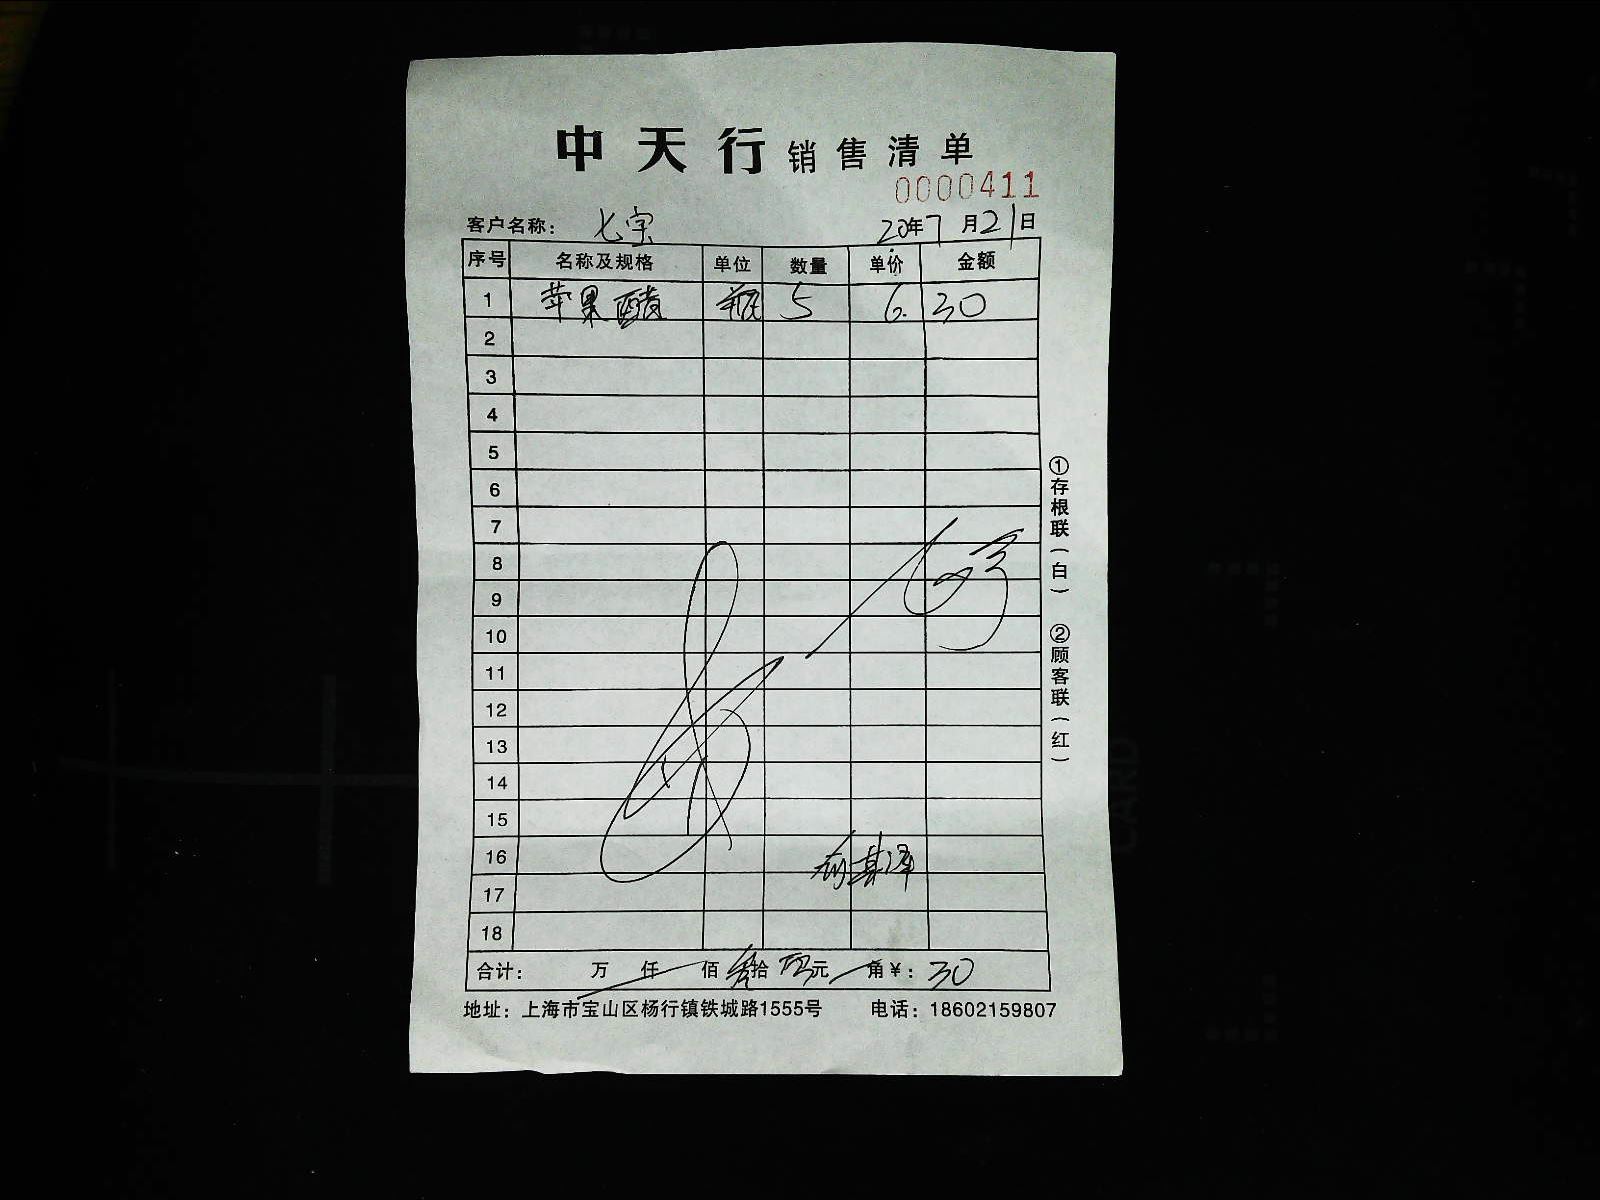 中天行销售清单
0000411
客户名称: 七宝 20年7月21日
序号 名称及规格 单位 数量 单价 金额
1 苹果醋 瓶 5 6. 30
2
3
4
5
6
7
8
9
10
11
12
13
14
15
16
17
18
合计: 万 仟 佰 叁拾 元 角¥: 30
地址: 上海市宝山区杨行镇铁城路1555号 电话: 18602159807
①存根联(白) ②顾客联(红)